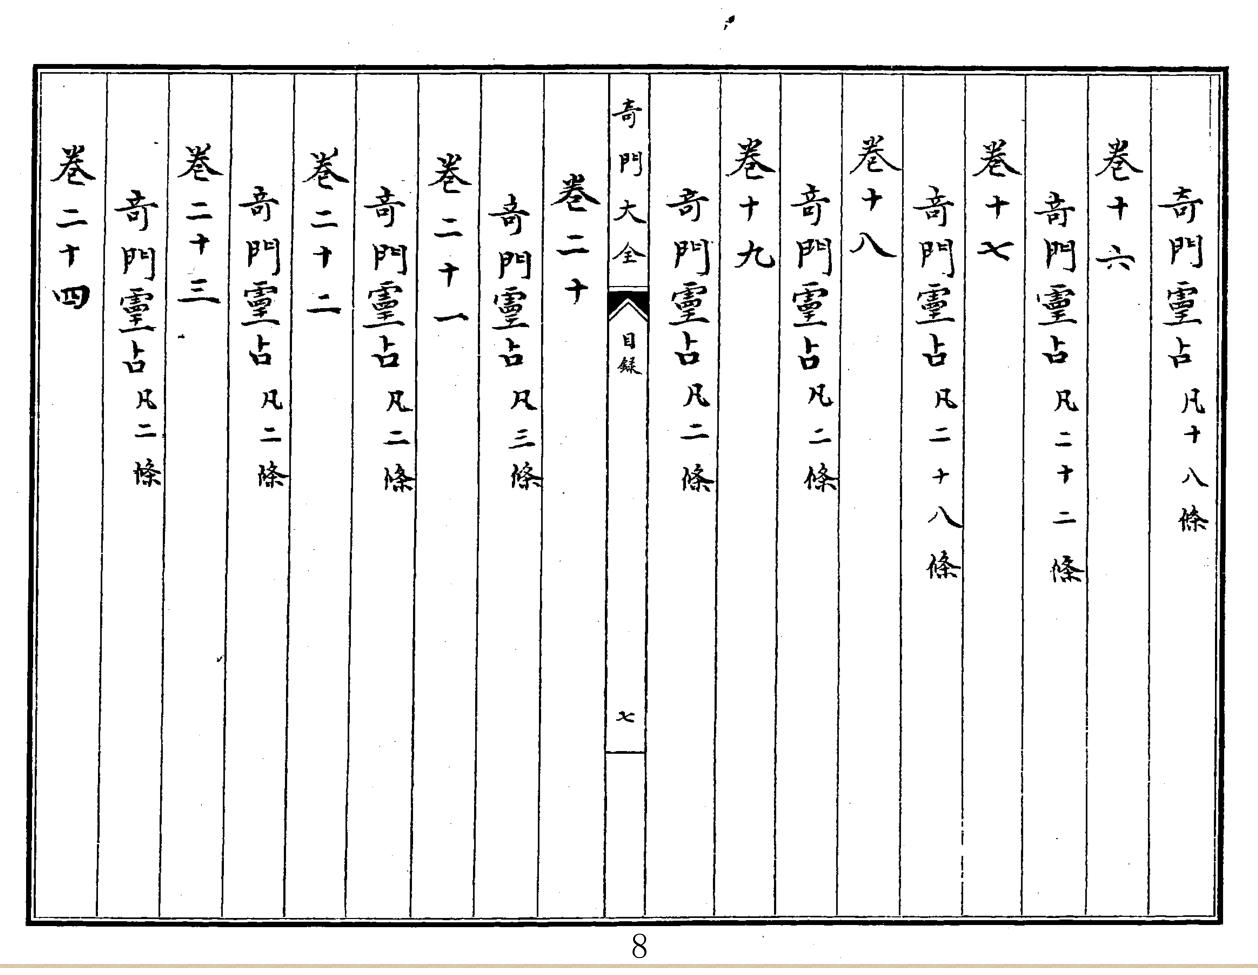 奇門靈占凡十八條
卷十六
奇門靈占凡二十二條
卷十七
奇門靈占凡二十八條
卷十八
奇門靈占凡二條
卷十九
奇門靈占凡二條
奇門大全
目録
七
卷二十
奇門靈占凡三條
卷二十一
奇門靈占凡二條
卷二十二
奇門靈占凡二條
卷二十三
奇門靈占凡二條
卷二十四
8